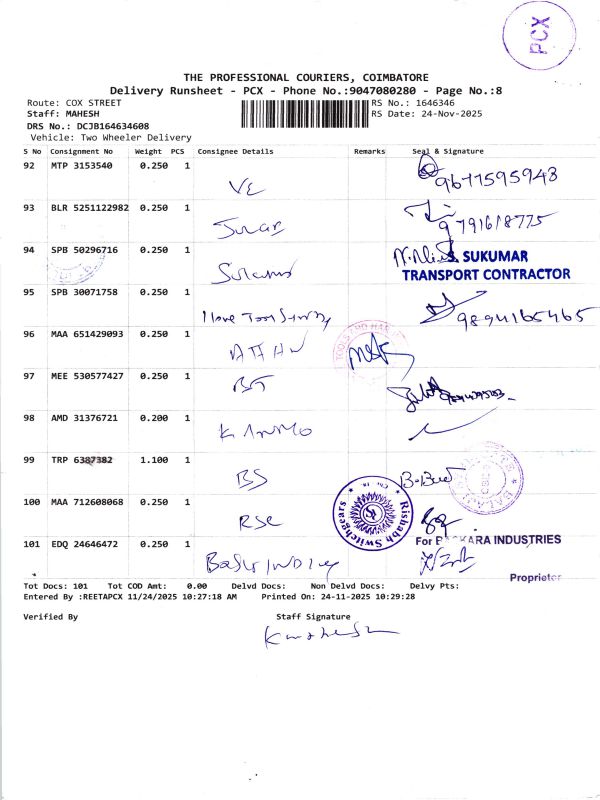 PCX
THE PROFESSIONAL COURIERS, COIMBATORE
Delivery Runsheet - PCX - Phone No.:9047080280 - Page No.:8
Route: COX STREET RS No.: 1646346
Staff: MAHESH RS Date: 24-Nov-2025
DRS No.: DCJB164634608
Vehicle: Two Wheeler Delivery
S No Consignment No Weight PCS Consignee Details Remarks Seal & Signature
92 MTP 3153540 0.250 1 VE 9677595943
93 BLR 5251122982 0.250 1 9791618775
94 SPB 50296716 0.250 1 S. SUKUMAR
TRANSPORT CONTRACTOR
95 SPB 30071758 0.250 1 9894165465
96 MAA 651429093 0.250 1
97 MEE 530577427 0.250 1
98 AMD 31376721 0.200 1
99 TRP 6387382 1.100 1 BS
Rishabh Switchgears
100 MAA 712608068 0.250 1 RSC
For BASKARA INDUSTRIES
101 EDQ 24646472 0.250 1
Proprietor
Tot Docs: 101 Tot COD Amt: 0.00 Delvd Docs: Non Delvd Docs: Delvy Pts:
Entered By :REETAPCX 11/24/2025 10:27:18 AM Printed On: 24-11-2025 10:29:28
Verified By Staff Signature